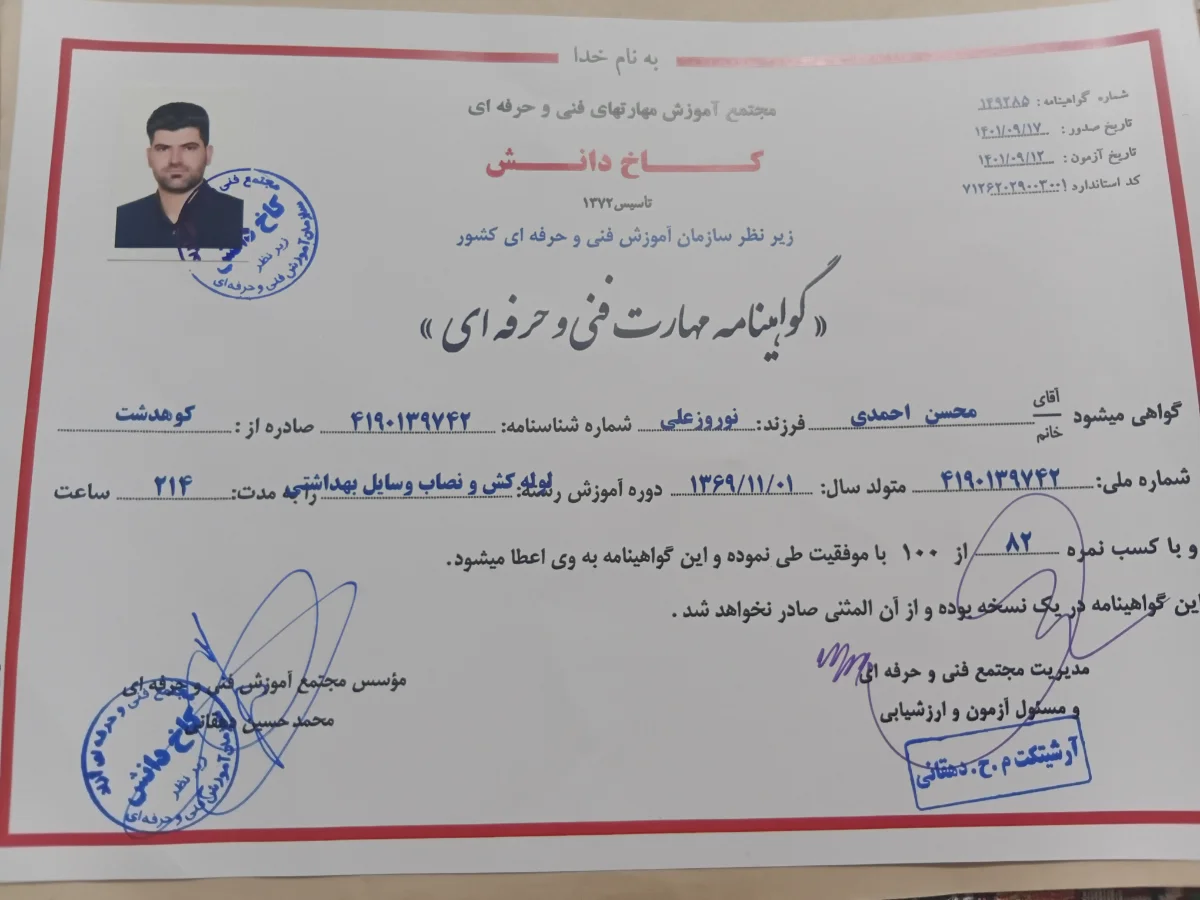 به نام خدا
مجتمع آموزش مهارتهای فنی و حرفه ای
کاخ دانش
تاسیس ۱۳۷۲
زیر نظر سازمان آموزش فنی و حرفه ای کشور
شماره گواهینامه: ۱۴۹۲۸۵
تاریخ صدور: ۱۴۰۱/۰۹/۱۷
تاریخ آزمون: ۱۴۰۱/۰۹/۱۲
کد استاندارد ۷۱۲۶۲۰۲۹۰۰۳۰۰۱
مجتمع فنی
کاخ دانش
زیر نظر
سازمان آموزش فنی و حرفه‌ای
«گواهینامه مهارت فنی و حرفه ای»
گواهی میشود آقای خانم محسن احمدی فرزند: نوروزعلی شماره شناسنامه: ۴۱۹۰۱۳۹۷۴۲ صادره از: کوهدشت
شماره ملی: ۴۱۹۰۱۳۹۷۴۲ متولد سال: ۱۳۶۹/۱۱/۰۱ دوره آموزش رشته: لوله کش و نصاب وسایل بهداشتی را به مدت: ۲۱۴ ساعت
و با کسب نمره ۸۲ از ۱۰۰ با موفقیت طی نموده و این گواهینامه به وی اعطا میشود.
این گواهینامه در یک نسخه بوده و از آن المثنی صادر نخواهد شد.
مدیریت مجتمع فنی و حرفه ای
و مسئول آزمون و ارزشیابی
آرشیتکت م.ح.دهقانی
مؤسس مجتمع آموزش فنی و حرفه ای
محمدحسین دهقانی
مجتمع فنی و حرفه ای
کاخ دانش
زیر نظر
سازمان آموزش فنی و حرفه‌ای